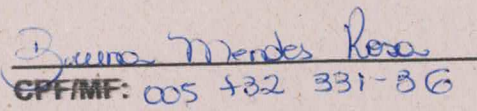 Bruna Mendes Rosa
CPF/MF: 005 732 331-36